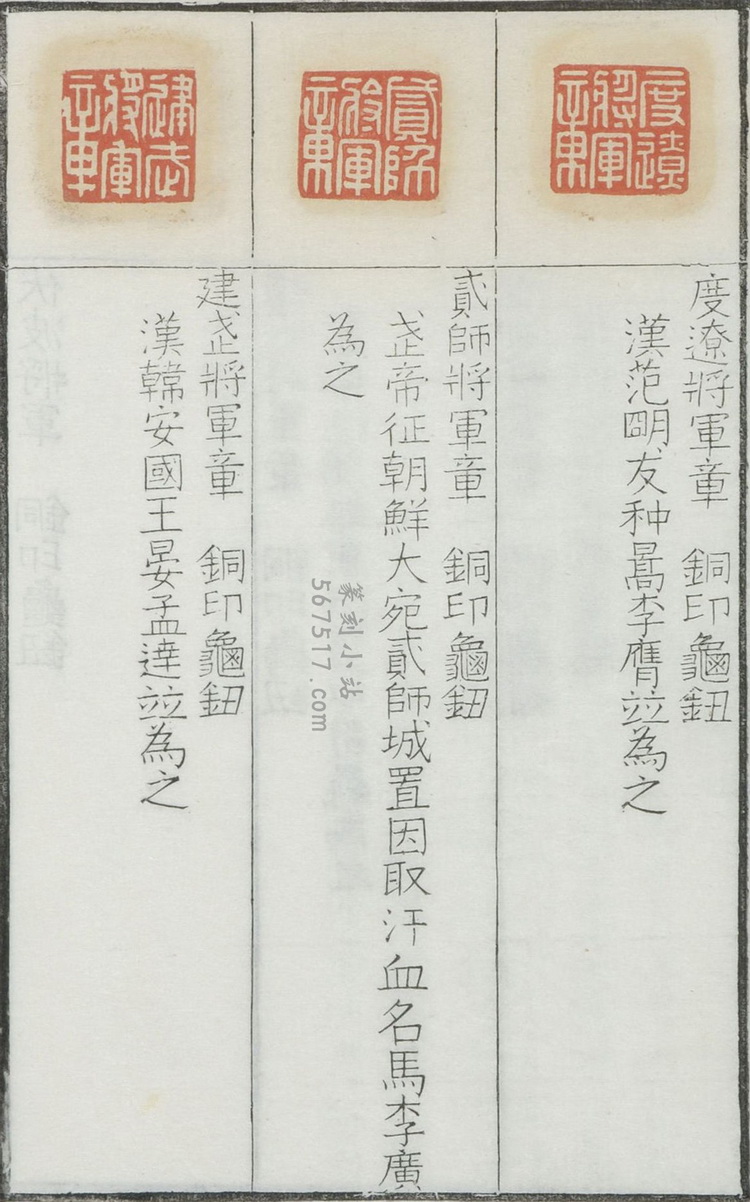 度遼將軍章
度遼將軍章 銅印龜鈕
漢范明友种暠李膺竝為之
貳師將軍章
貳師將軍章 銅印龜鈕
武帝征朝鮮大宛貳師城置因取汗血名馬李廣
為之
建武將軍章
建武將軍章 銅印龜鈕
漢韓安國王晏孟達竝為之
篆刻小站
567517.com